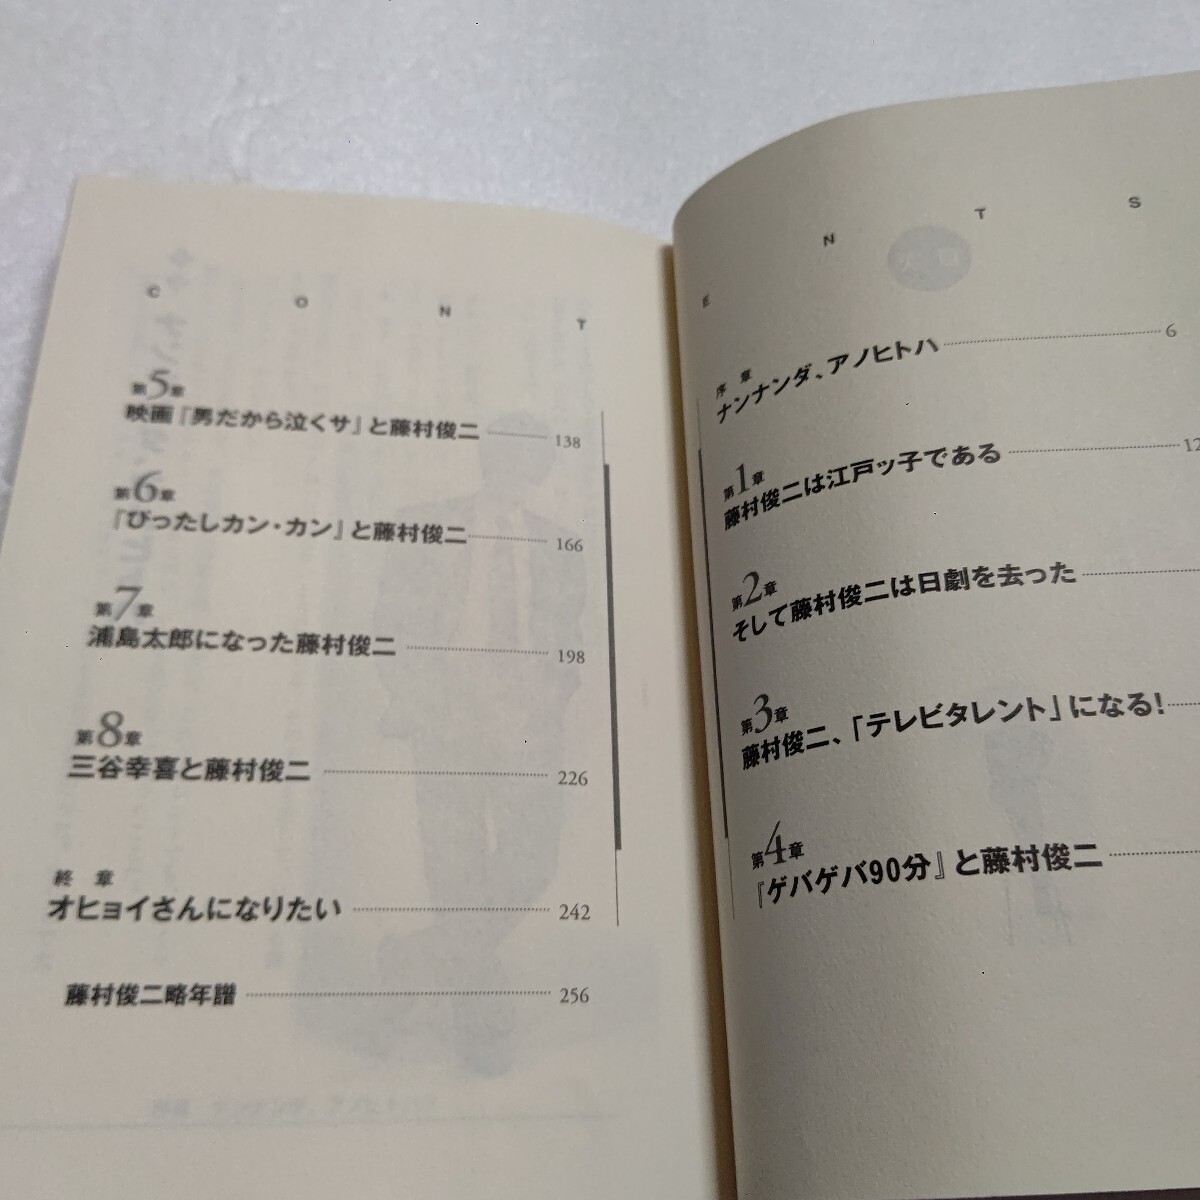 C O N T
第5章
映画『男だから泣くサ』と藤村俊二 138
第6章
『ぴったしカン・カン』と藤村俊二 166
第7章
浦島太郎になった藤村俊二 198
第8章
三谷幸喜と藤村俊二 226
終章
オヒョイさんになりたい 242
藤村俊二略年譜 256
E N T S
序章
ナンナンダ、アノヒトハ 6
第1章
藤村俊二は江戸ッ子である 12
第2章
そして藤村俊二は日劇を去った
第3章
藤村俊二、「テレビタレント」になる!
第4章
『ゲバゲバ90分』と藤村俊二